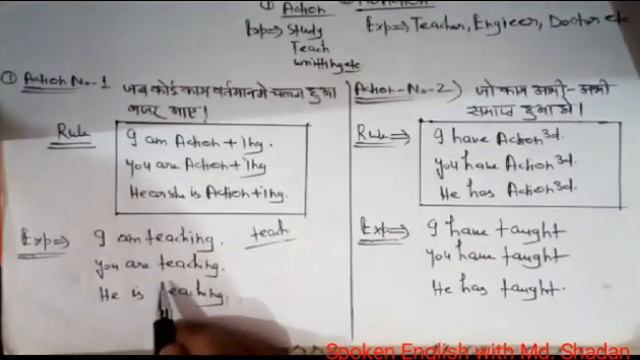 ① Action
Exp⇒ Study
Teach
writting etc
Exp⇒ Teacher, Engieer, Doctor etc
① Action No-1 जब कोई काम वर्तमान में चलता हुआ
नजर आए।
Rule
I am Action + ing.
You are Action + ing
He or she is Action + ing.
Exp⇒ I am teaching. teach
You are teaching.
He is teaching
Action-No-2) जो काम अभी-अभी
समाप्त हुआ हो।
Rule⇒ I have Action 3d.
You have Action 3d.
He has Action 3d.
Exp⇒ I have taught
You have taught
He has taught.
Spoken English with Md. Shadan